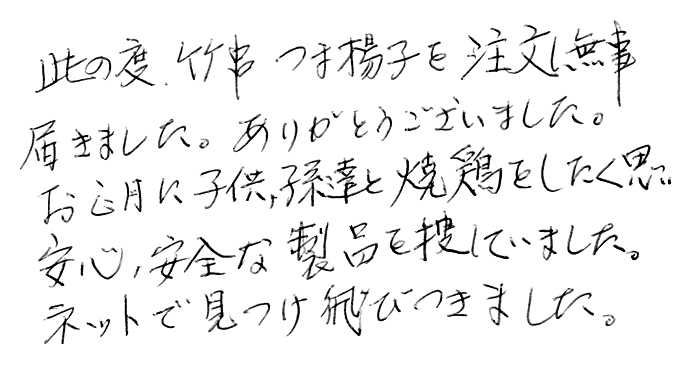 此の度、竹串 つま楊子を 注文し無事
届きました。ありがとうございました。
お正月に子供,孫達と焼鶏をしたく思い
安心,安全な製品を捜していました。
ネットで見つけ飛びつきました。